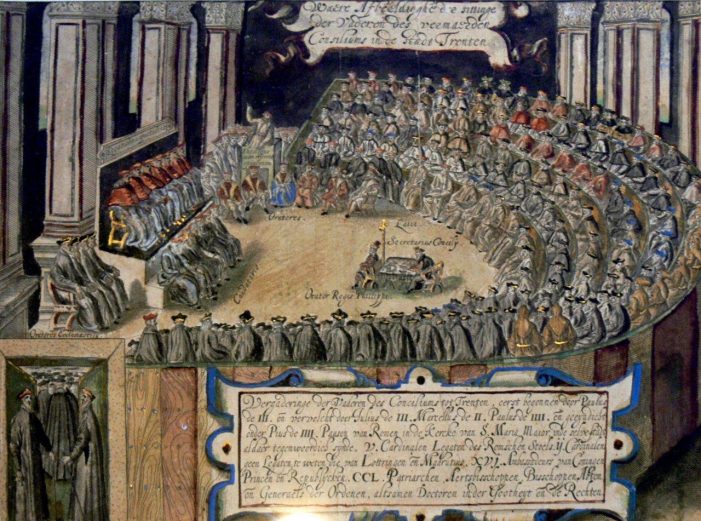 Waere Afbeeldinghe d'e sittinge
der Vaderen des vermaerden
Consiliums in de Stadt Trenten
Oratores
Laici
Secretarius Concily
Orator Regis Philippi
Vergaderinge der Vaderen des Conciliums tot Trenten, eerst begonnen door Paulus
de III. en vervolcht door Julius de III. Marcellus de II. Paulus de IIII. en
onder Pius de IIII. Pausen van Romen in de Kercke van S. Maria Maior
aldaer tegenwoordich synde. V. Cardinalen Legaten des Romschen Stoels II Cardinalen
geen Legaten te weten die van Lottringen en Madrutius. XVI. Ambassadeurs van Coningen
Princen en Republycken. CCL. Patriarchen, Aertsbisschoppen, Bisschoppen, Abten
en Generaels der Ordenen, altsamen Doctoren in der Godtheyt en de Rechten.